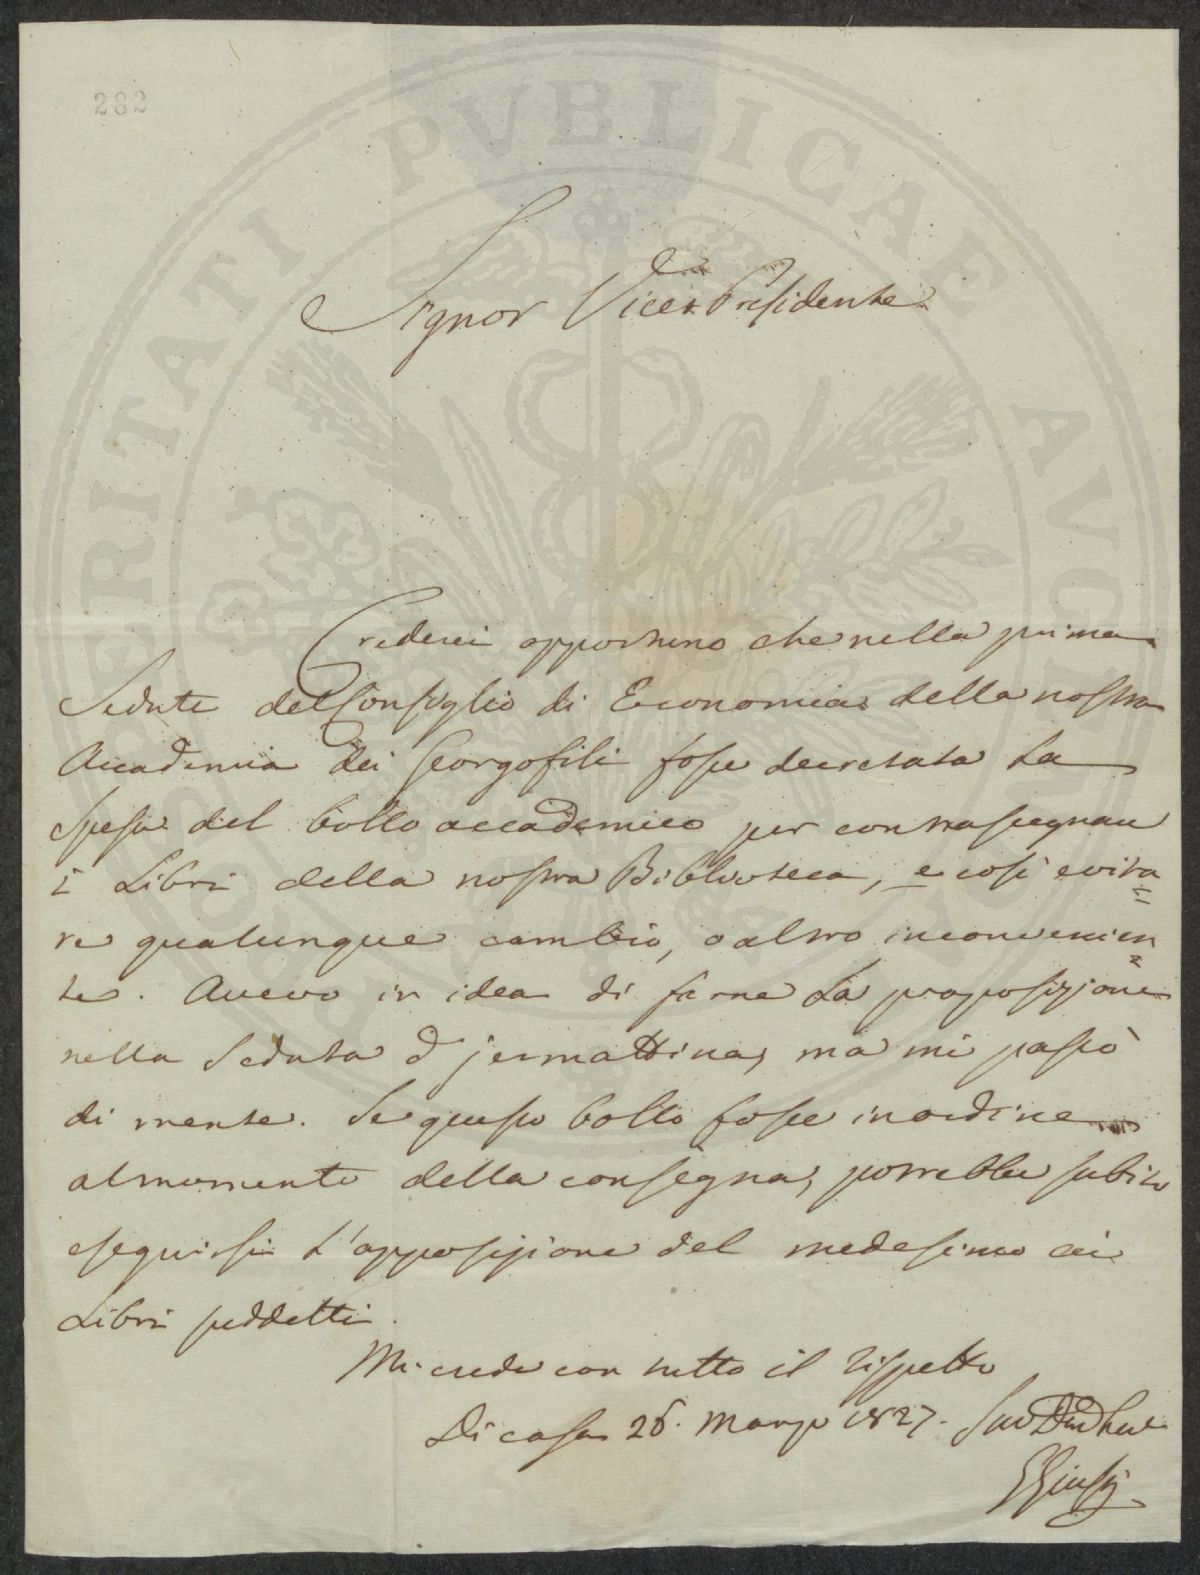 282
PROSPERITATI PVBLICAE AVGENDAE
Signor Vice Presidente
Crederei opportuno che nella prima
Seduta del Consiglio di Economia della nostra
Accademia dei Georgofili fosse decretata la
spesa del bollo accademico per contrassegnare
i Libri della nostra Biblioteca, e così evita=
re qualunque cambio, o altro inconvenien=
te. Avevo in idea di farne la proposizione
nella Seduta d'jermattina, ma mi passò
di mente. Se questo bollo fosse in ordine
al momento della consegna, potrebbe subito
eseguirsi l'apposizione del medesimo ai
Libri suddetti.
Mi creda con tutto il rispetto
Di casa 26. Marzo 1827.
GGiusti